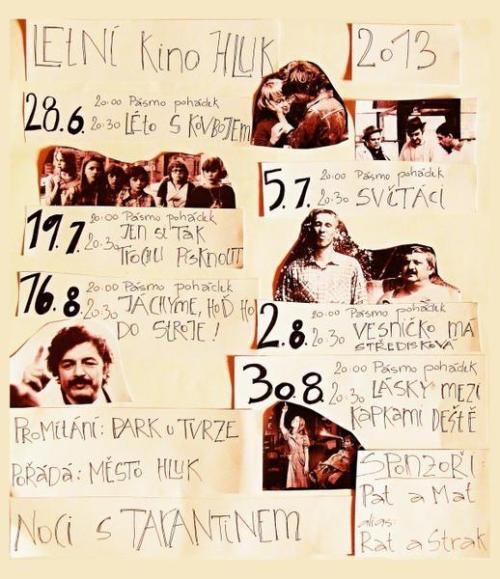 LETNÍ KINO HLUK
2013
28.6. 20:00 Pásmo pohádek
20:30 LÉTO S KOVBOJEM
5.7. 20:00 Pásmo pohádek
20:30 SVĚTÁCI
19.7. 20:00 Pásmo pohádek
20:30 JEN SI TAK
TROCHU PÍSKNOUT
16.8. 20:00 Pásmo pohádek
20:30 JÁCHYME, HOĎ HO
DO STROJE!
2.8. 20:00 Pásmo pohádek
20:30 VESNIČKO MÁ
STŘEDISKOVÁ
30.8. 20:00 Pásmo pohádek
20:30 LÁSKY MEZI
KAPKAMI DEŠTĚ
PROMÍTÁNÍ: PARK U TVRZE
POŘÁDÁ: MĚSTO HLUK
NOCI S TARANTINEM
SPONZOŘI:
Pat a Mat
alias:
Rat a Strak